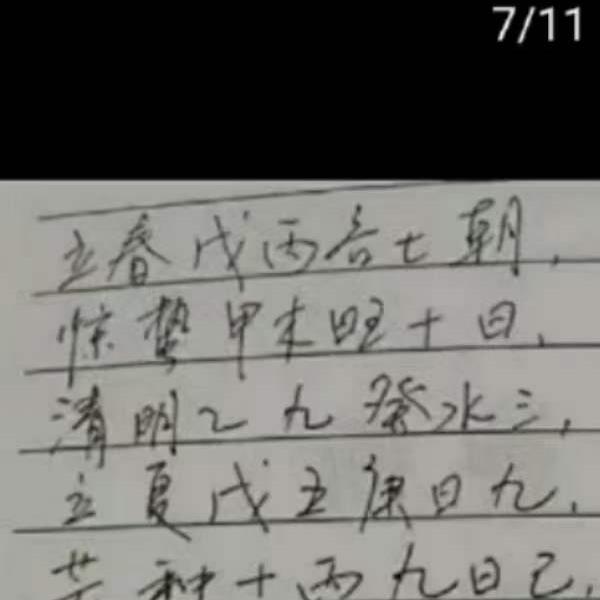 7/11
立春戊丙各七朝,
惊蛰甲木旺十日,
清明乙九癸水三,
立夏戊五庚日九,
芒种十丙九日己,